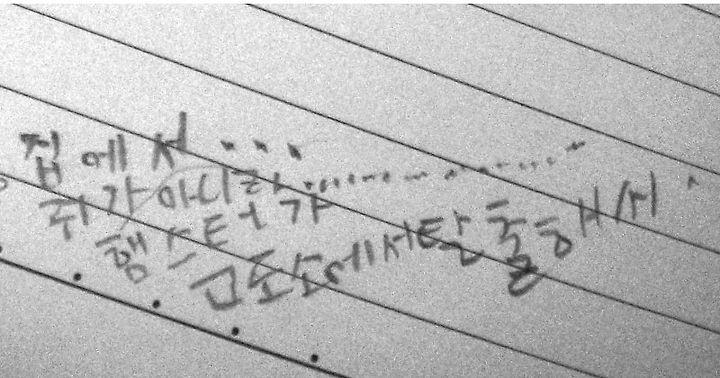 집에서...
쥐가 아니라.................
햄스터가
고도소에서탈출해서.